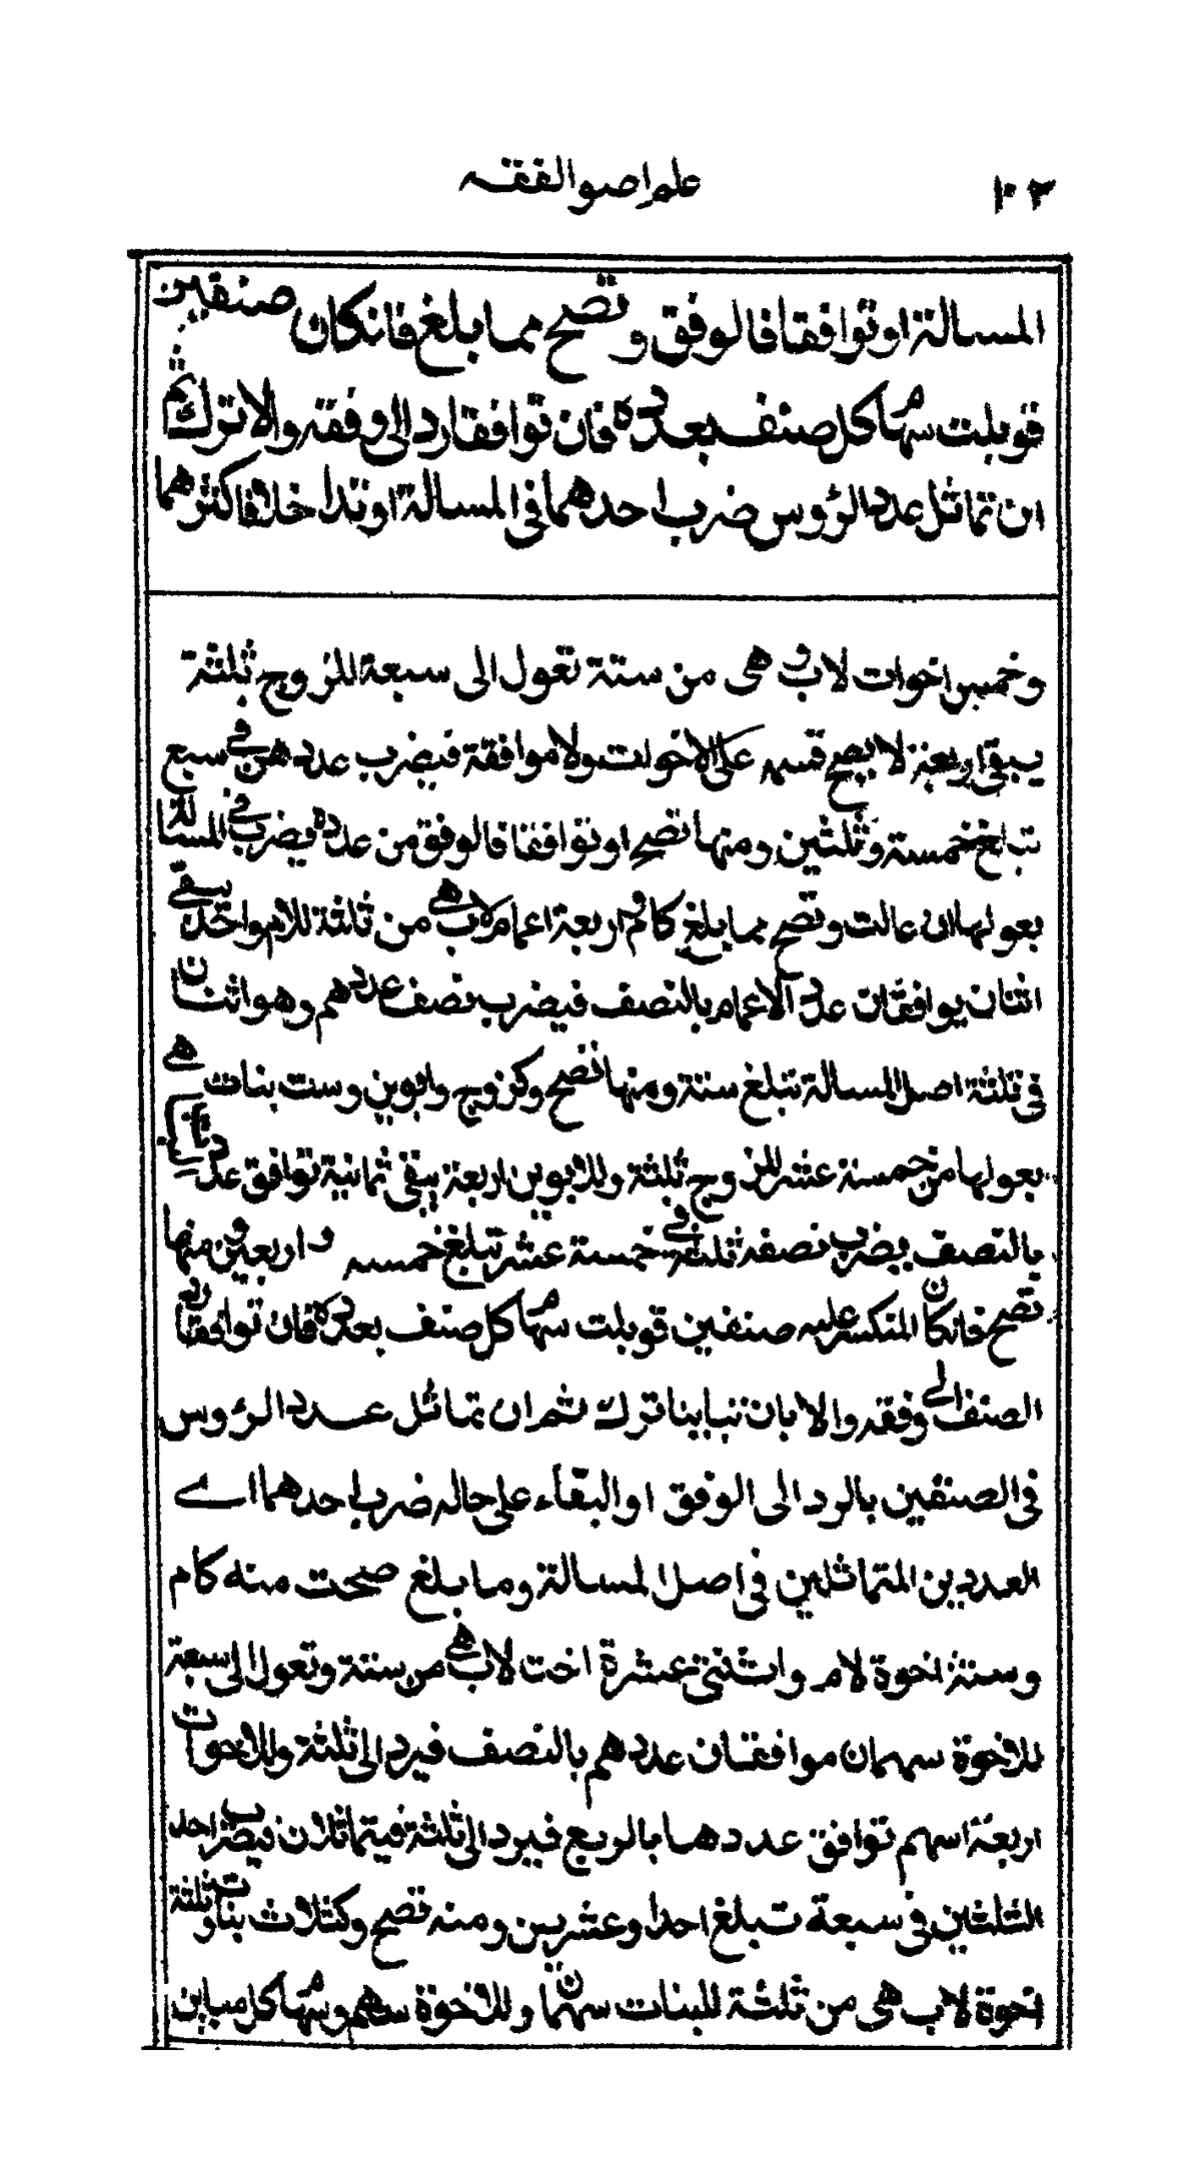 ١٠٢ علم اصول الفقه
المسالة او توافقا فالوفق وتصح مما بلغ فان كان صنفين
قوبلت سهام كل صنف بعدده فان توافقا رد الى وفقه والا ترك ثم
ان تماثل عدد الرؤس ضرب احدهما فى المسالة او تداخلا فاكثرهما
وخمس اخوات لاب هى من ستة تعول الى سبعة للزوج ثلثة
يبقى اربعة لا يصح قسمه على الاخوات ولا موافقة فيضرب عددهن فى سبع
تبلغ خمسة وثلثين ومنها تصح او توافقا فالوفق من عدده يضرب فى المسالة
بعولها ان عالت وتصح مما بلغ كام واربعة اعمام لاب هى من ثلثة للام واحد يبقى
اثنان يوافقان عدد الاعمام بالنصف فيضرب نصف عددهم وهو اثنان
فى ثلثة اصل المسالة تبلغ ستة ومنها تصح وكزوج وابوين وست بنات هى
بعولها من خمسة عشر للزوج ثلثة وللابوين اربعة يبقى ثمانية توافق عدد
بالنصف يضرب نصفه ثلثة فى خمسة عشر تبلغ خمسه واربعين ومنها
تصح فان كان المنكسر عليه صنفين قوبلت سهام كل صنف بعدده فان توافقا رد
الصنف الى وفقه والا بان تباينا ترك ثم ان تماثل عدد الرؤس
فى الصنفين بالرد الى الوفق او البقاء على حاله ضرب احدهما اے
العددين المتماثلين فى اصل المسالة وما بلغ صحت منه كام
وستة اخوة لام واثنتى عشرة اخت لاب هى من ستة وتعول الى سبعة
للاخوة سهمان موافقان عددهم بالنصف فيرد الى ثلثة وللاخوات
اربعة اسهم توافق عددها بالربع فيرد الى ثلثة فيتماثلان فيضرب احد
الثلثين فى سبعة تبلغ احدا وعشرين ومنه تصح وكثلاث بنات وثلثة
اخوة لاب هى من ثلثة للبنات سهمان وللاخوة سهم وسهام كل مباين